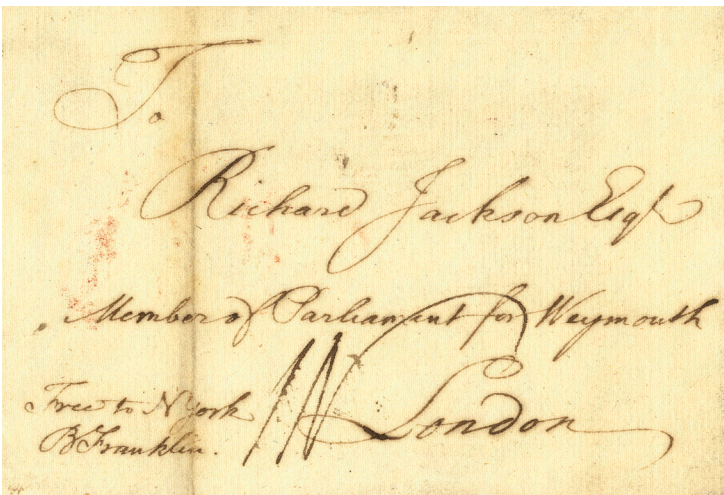 To
Richard Jackson Esqr
Member of Parliament for Weymouth
London
Free to N York
B Franklin.